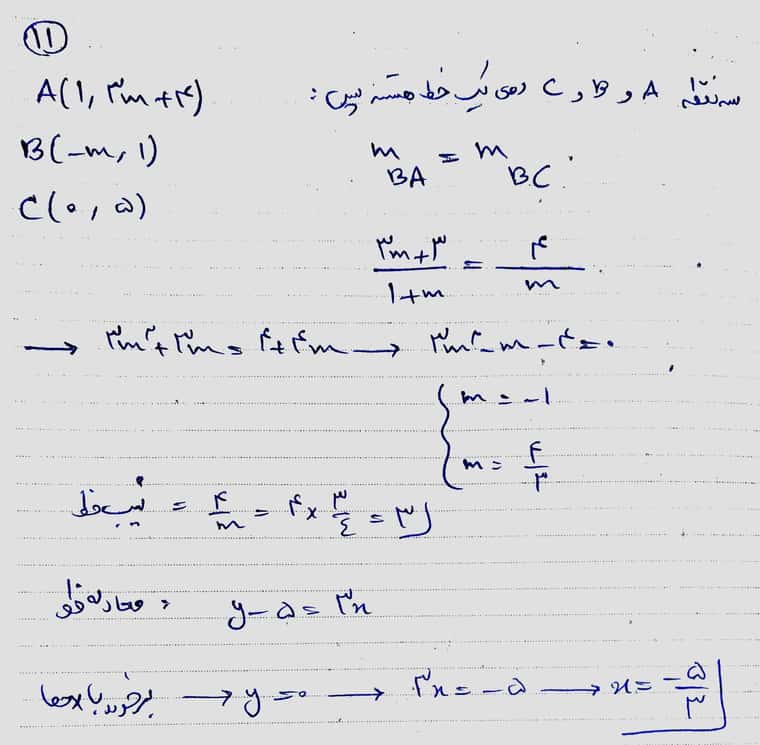 ۱۱
A(1, ۳m+۴) سه نقطه A و B و C روی یک خط هستند پس:
B(-m, 1) m_BA = m_BC
C(۰, ۵)
(۳m+۳)/(1+m) = ۴/m
→ ۳m²+۳m = ۴+۴m → ۳m²-m-۴=۰
{ m = -1
m = ۴/۳
شیب خط = ۴/m = ۴×۳/٤ = ۳
معادله خط: y-۵ = ۳x
برخورد با xها → y=۰ → ۳x = -۵ → x = -۵/۳